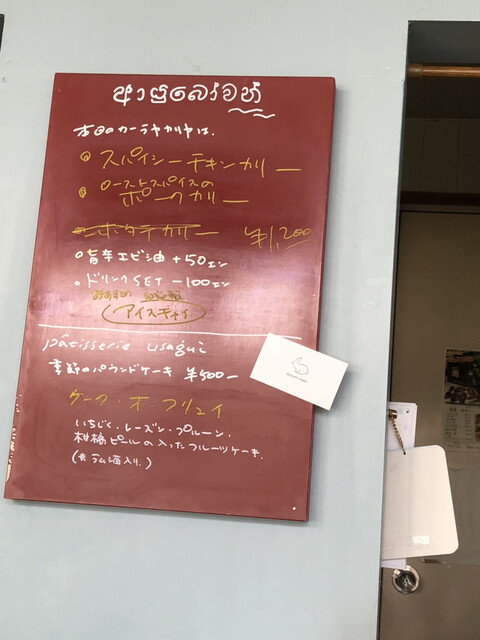 ආයුබෝවන්
本日のカーラヤカリヤは、
スパイシーチキンカリー
ローストスパイスの
ポークカリー
ホタテカリー ¥1,200
旨辛エビ油 +50エン
・ドリンクSET -100エン
おすすめ
アイスチャイ
pâtisserie usagui
季節のパウンドケーキ ¥500-
ケーク・オ・フリュイ
いちじく・レーズン・プルーン・
柑橘ピールの入ったフルーツケーキ.
(※ラム酒入り.)